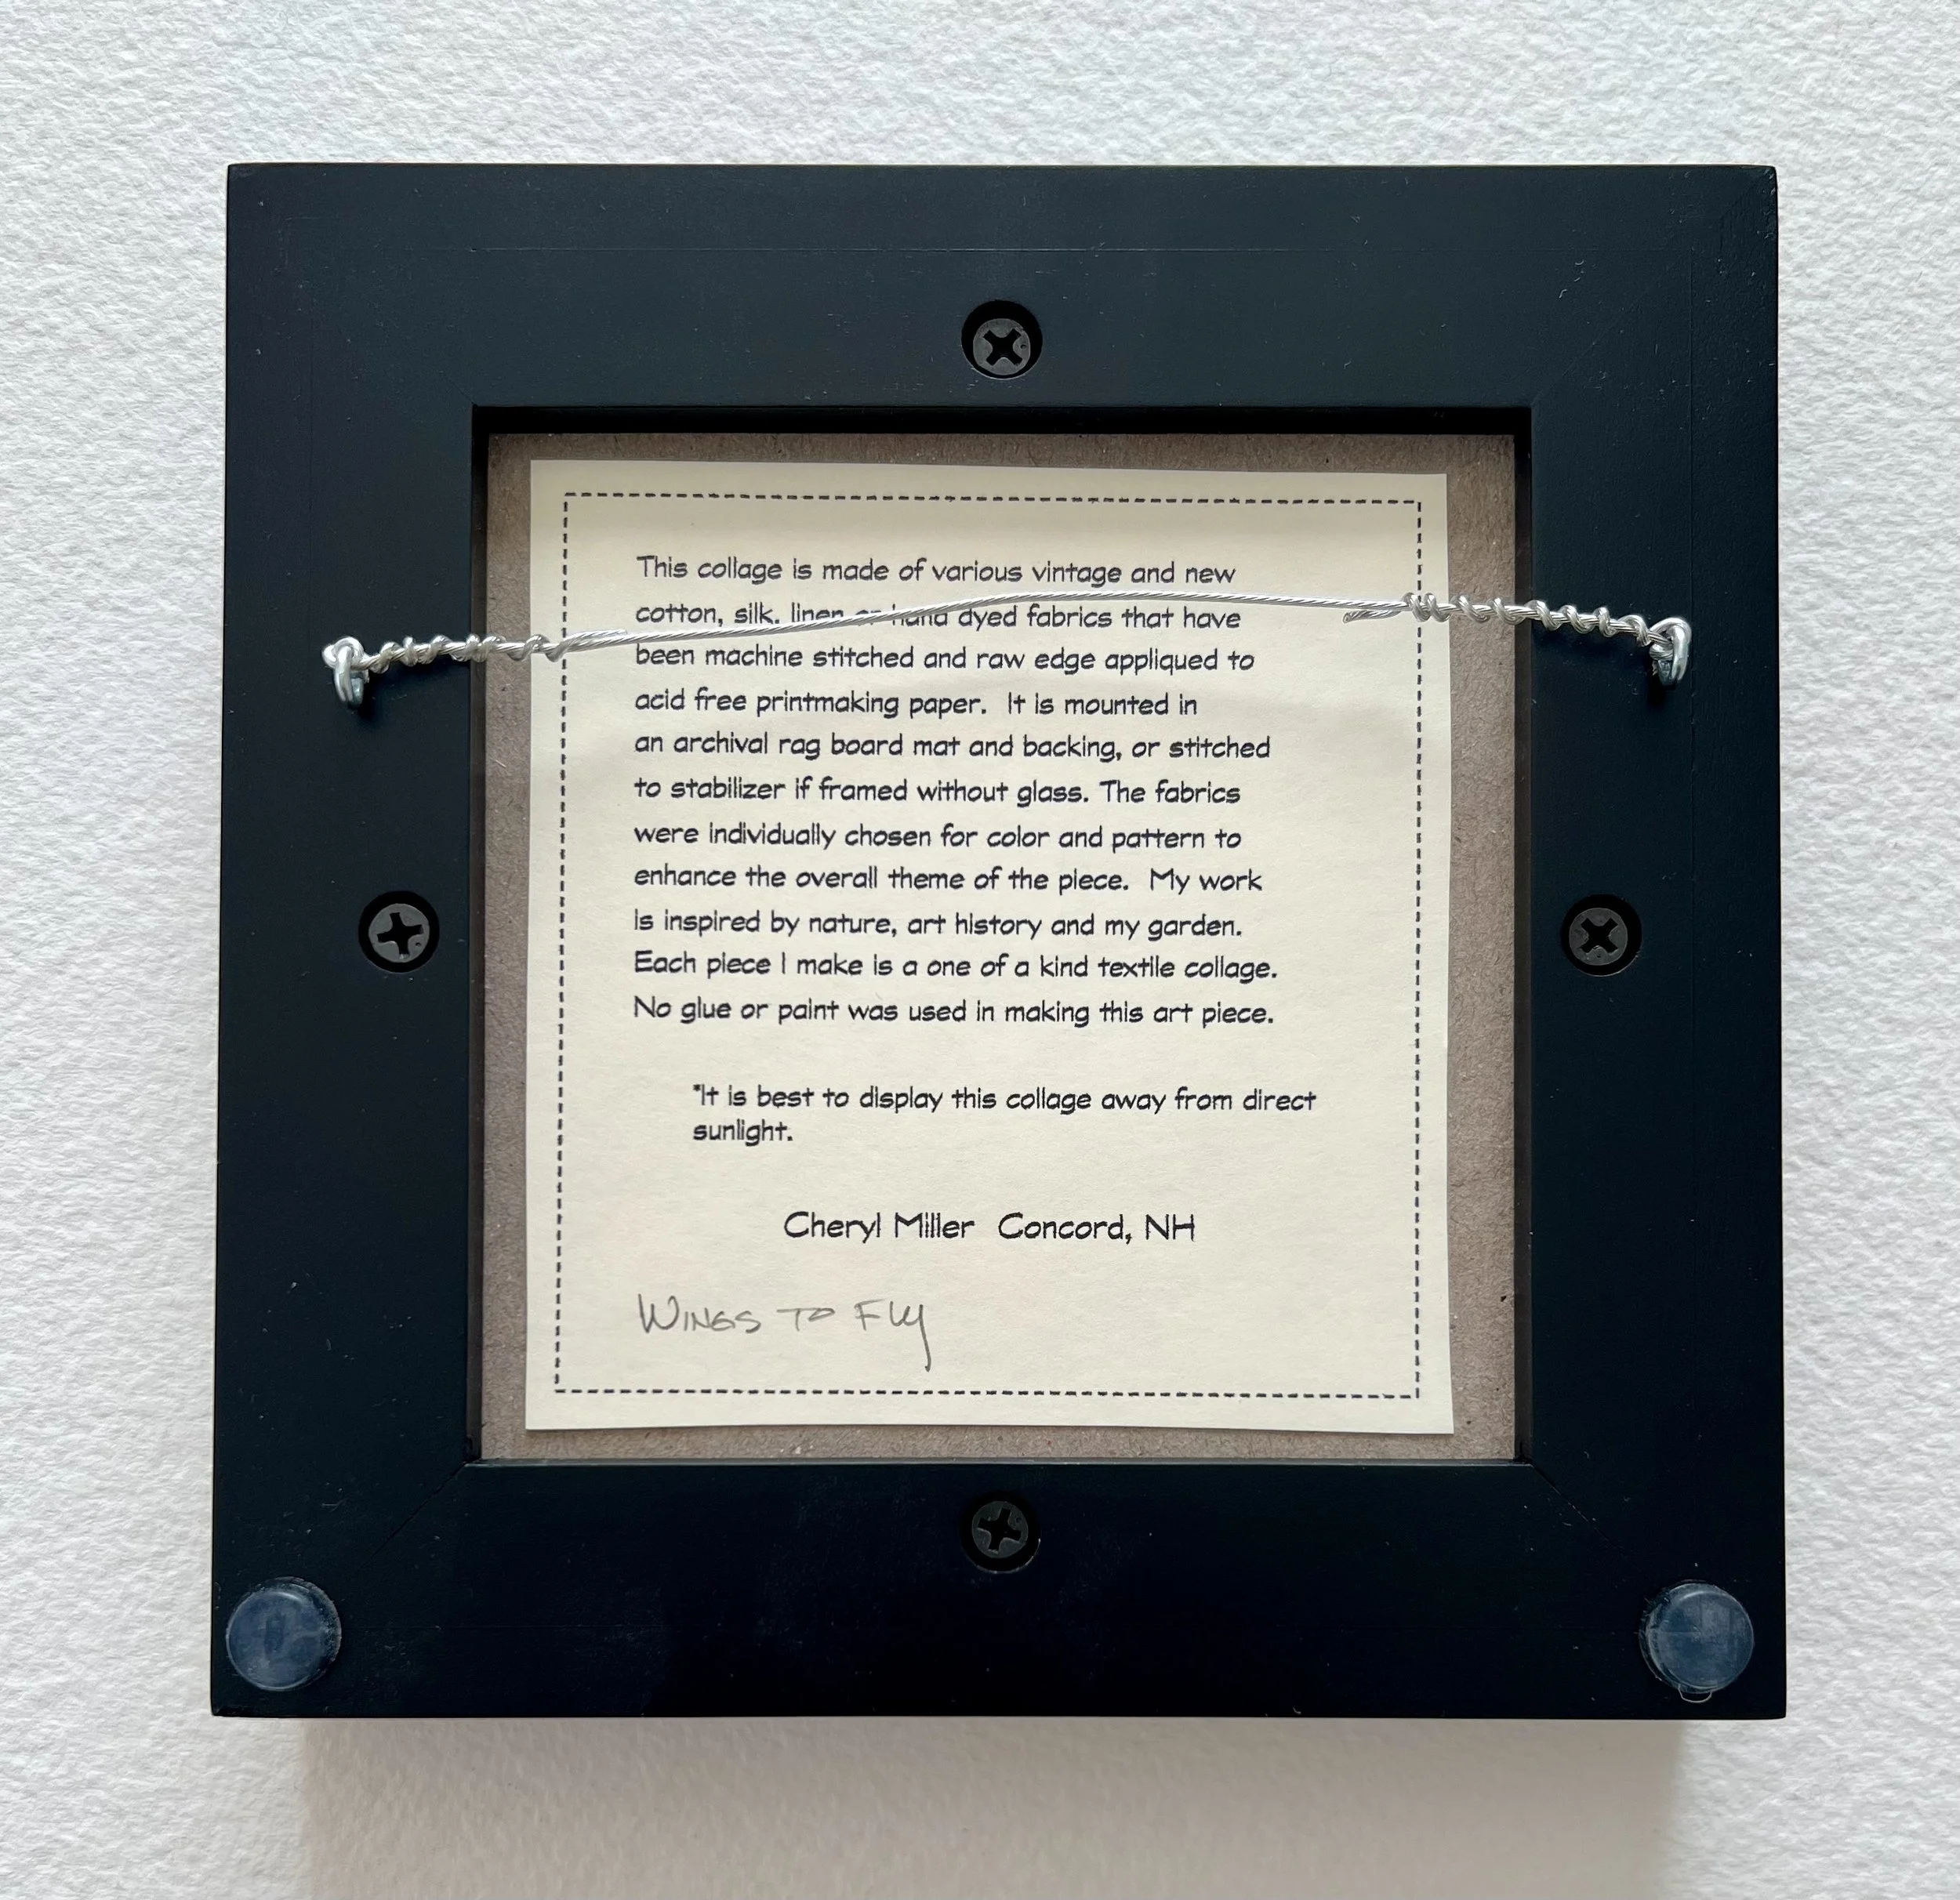 This collage is made of various vintage and new
cotton, silk, linen or hand dyed fabrics that have
been machine stitched and raw edge appliqued to
acid free printmaking paper. It is mounted in
an archival rag board mat and backing, or stitched
to stabilizer if framed without glass. The fabrics
were individually chosen for color and pattern to
enhance the overall theme of the piece. My work
is inspired by nature, art history and my garden.
Each piece I make is a one of a kind textile collage.
No glue or paint was used in making this art piece.
*It is best to display this collage away from direct
sunlight.
Cheryl Miller Concord, NH
Wings to Fly